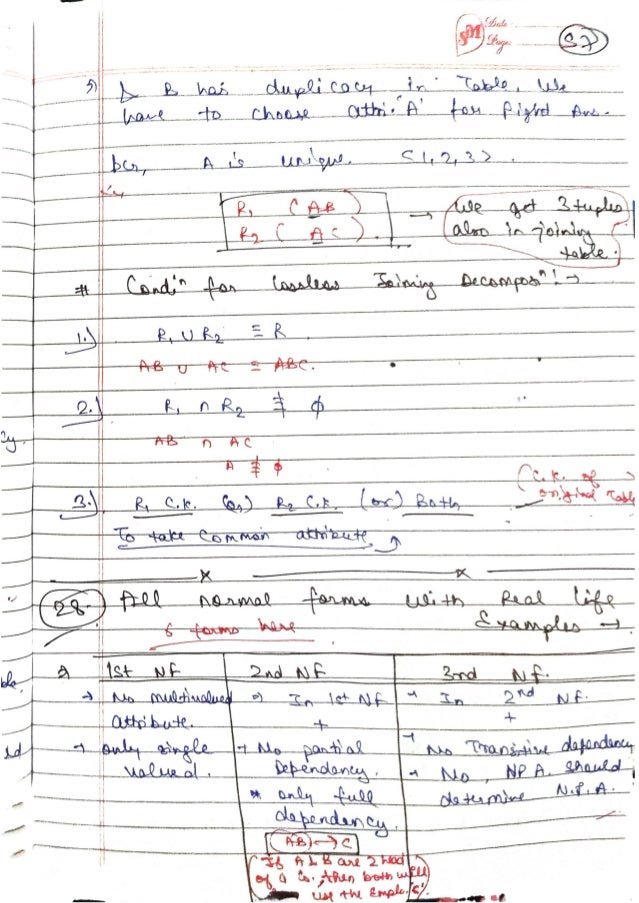 SM Date
Page
57
⇒ B has duplicacy in Table, We
have to choose attri. 'A' for right Ans.
bcz, A is unique. <1, 2, 3>.
R₁ (AB)
R₂ (AC).
→ We get 3 tuples
also in joining
table.
# Condiⁿ for Lossless Joining Decomposⁿ! →
1.) R₁ ∪ R₂ ≡ R
AB ∪ AC = ABC.
2.) R₁ ∩ R₂ ≠ ϕ
AB ∩ AC
A ≠ ϕ
3.) R₁ C.K. (or) R₂ C.K. (or) Both
(C.K. of
original Table
To take common attribute
28. All normal forms with Real life
Examples →
6 forms here
1st NF
→ No multivalued
attribute.
→ only single
valued.
2nd NF
⇒ In 1st NF
+
→ No partial
Dependency.
* only full
dependency.
(AB) → C
(If A & B are 2 head
of a Co., then both will
use the Emplo. 'C'.)
3rd Nf.
→ In 2nd NF.
+
→ No Transitive dependency
→ No, NPA. should
determine N.P.A.